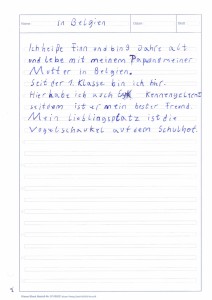 in Belgien
Ich heiße Finn und bin 9 Jahre alt
und lebe mit meinem Papa und meiner
Mutter in Belgien.
Seit der 1. Klasse bin ich hir.
Hir habe ich auch kennengelernt
seitdem ist er mein bester Freund.
Mein Lieblingsplatz ist die
Vogelschaukel auf dem Schulhof.